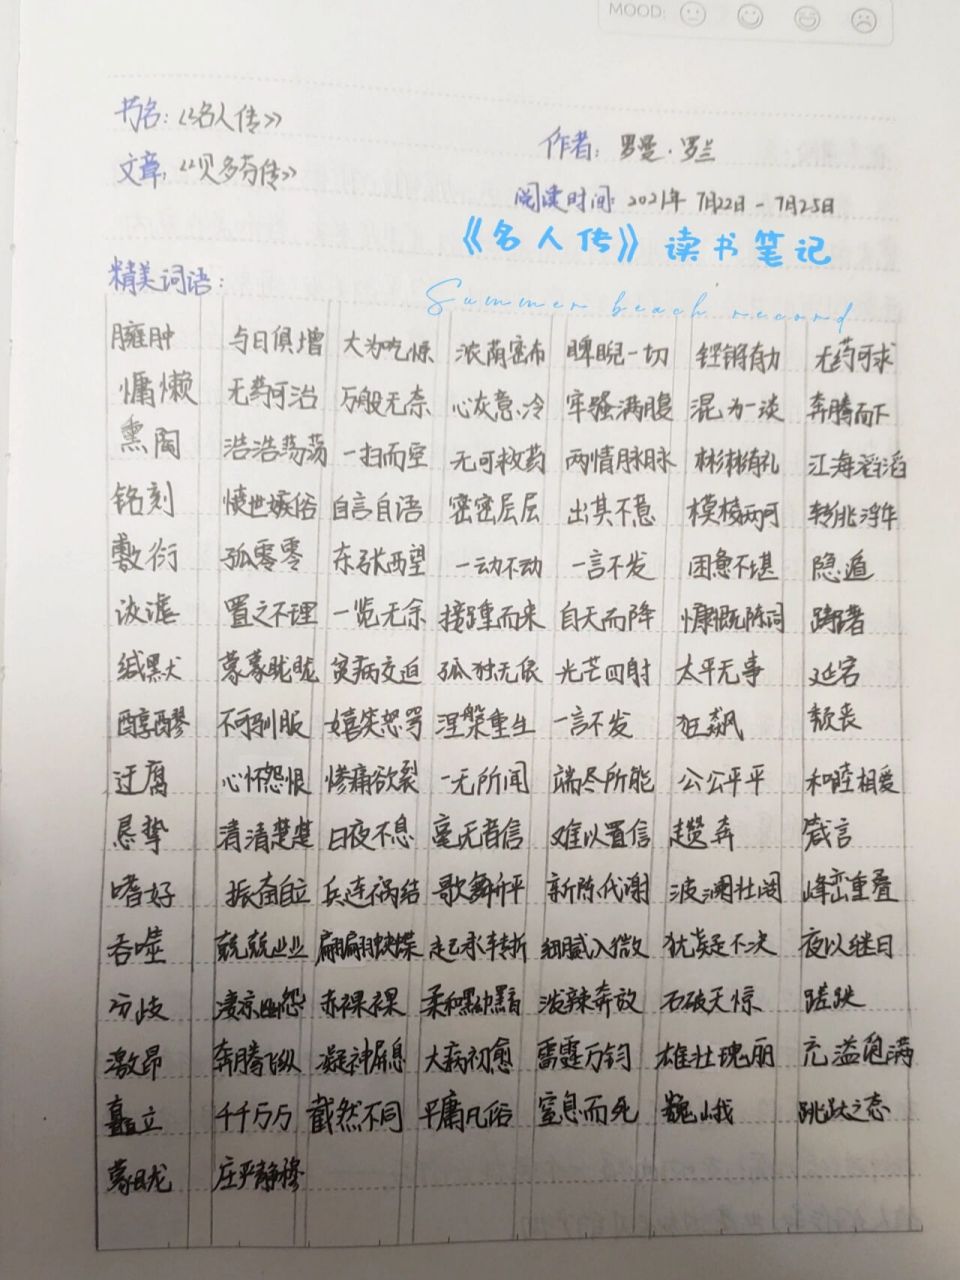 MOOD:
书名:《名人传》
作者: 罗曼·罗兰
文章:《贝多芬传》
阅读时间: 2021年7月22日-7月25日
《名人传》读书笔记
Summer beach record
精美词语:
臃肿 与日俱增 大为吃惊 浓荫密布 睥睨一切 铿锵有力 无药可求
慵懒 无药可治 万般无奈 心灰意冷 牢骚满腹 混为一谈 奔腾而下
熏陶 浩浩荡荡 一扫而空 无可救药 两情脉脉 彬彬有礼 江海滔滔
铭刻 愤世嫉俗 自言自语 密密层层 出其不意 模棱两可
敷衍 孤零零 东张西望 一动不动 一言不发 困惫不堪 隐遁
置之不理 一览无余 接踵而来 自天而降 慷慨陈词
缄默 蒙蒙眬眬 贫病交迫 孤独无依 光芒四射 太平无事 延宕
醇醪 不可驯服 嬉笑怒骂 涅槃重生 一言不发 狂飙 颓丧
迂腐 心怀怨恨 惨痛欲裂 一无所闻 端尽所能 公公平平 和睦相爱
恳挚 清清楚楚 日夜不息 毫无音信 难以置信 趱奔 箴言
嗜好 振奋自立 兵连祸结 歌舞升平 新陈代谢 波澜壮阔 峰峦重叠
吞噬 兢兢业业 翩翩蛱蝶 起承转折 细腻入微 犹疑不决 夜以继日
分歧 凄凉幽怨 赤裸裸 柔和黝黯 泼辣奔放 石破天惊 蹉跌
激昂 奔腾飞纵 凝神屏息 大病初愈 雷霆万钧 雄壮瑰丽 充溢饱满
矗立 千千万万 截然不同 平庸凡俗 窒息而死 巍峨 跳跃之态
蒙眬 庄严静穆